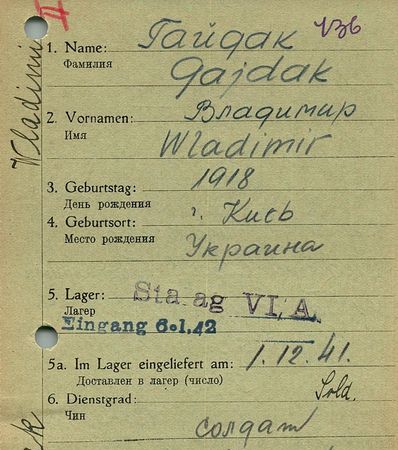 Wladimir
II
1. Name: Гайдак
Фамилия Gajdak
2. Vornamen: Владимир
Имя Wladimir
3. Geburtstag: 1918
День рождения
4. Geburtsort: г. Киев
Место рождения Украина
5. Lager: Sta ag VI, A.
Лагер
Eingang 6.1.42
5a. Im Lager eingeliefert am: 1.12.41.
Доставлен в лагер (число)
6. Dienstgrad: Sold.
Чин солдат